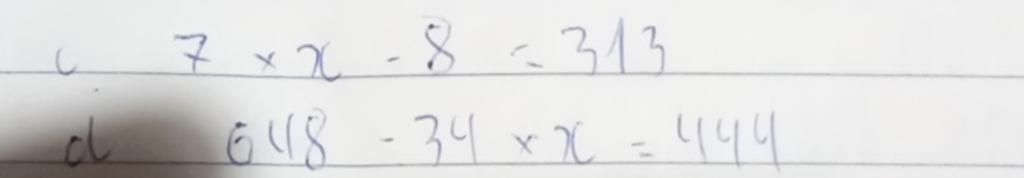 c 7 × x - 8 = 313
d 648 - 34 × x = 444